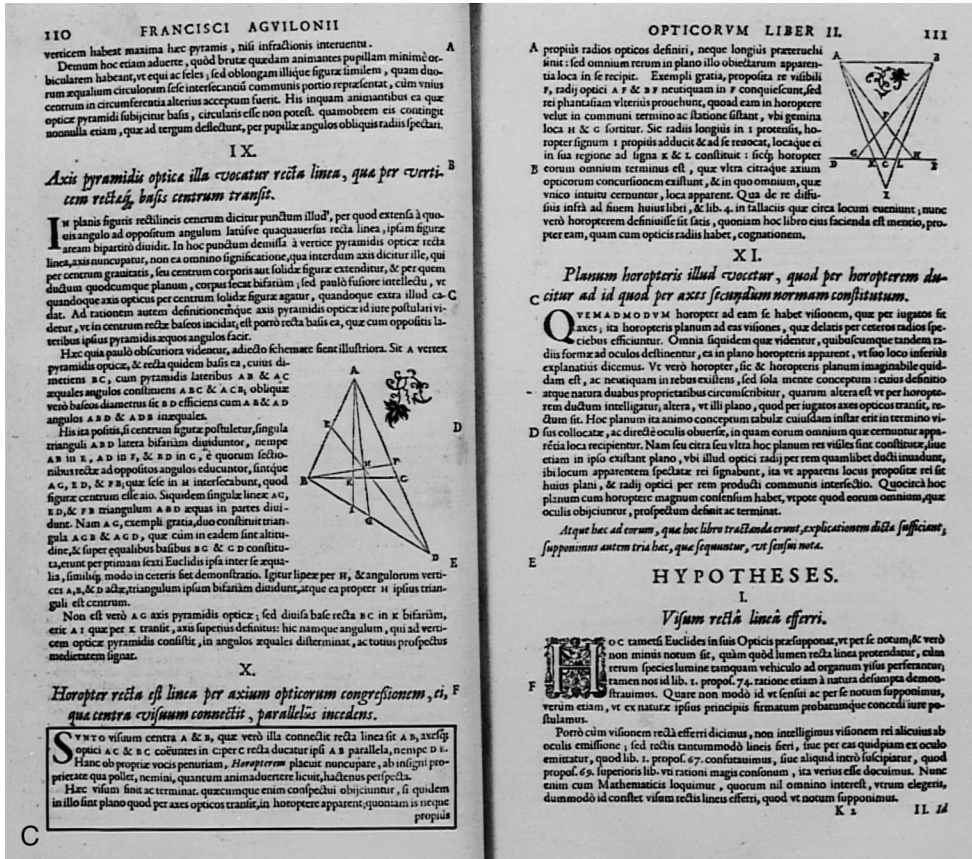 110
FRANCISCI AGVILONII
verticem habeat maxima hæc pyramis, nisi infractionis interuentu.
A
Demum hoc etiam aduerte, quòd brutæ quædam animantes pupillam minimè or-
bicularem habeant, vt equi ac feles; sed oblongam illique figuræ similem, quam duo-
rum æqualium circulorum sese intersecantiũ communis portio repræsentat, cùm vnius
centrum in circumferentia alterius acceptum fuerit. His inquam animantibus ea quæ
opticæ pyramidi subijcitur basis, circularis esse non potest. quamobrem eis contingit
nonnulla etiam, quæ ad tergum deflectunt, per pupillæ angulos obliquis radiis spectari.
IX.
B
Axis pyramidis opticæ illa vocatur recta linea, quæ per verti-
cem rectæq́; basis centrum transit.
IN planis figuris rectilineis centrum dicitur punctum illud, per quod extensa à quo-
uis angulo ad oppositum angulum latúsve quaquauersus recta linea, ipsam figuræ
aream bipartitò diuidit. In hoc punctum demissa à vertice pyramidis opticæ recta
linea, axis nuncupatur, non ea omnino significatione, qua interdum axis dicitur ille, qui
per centrum grauitatis, seu centrum corporis aut solidæ figuræ extenditur, & per quem
ductum quodcumque planum, corpus secat bifariàm; sed paulò fusiore intellectu, vt
quandoque axis opticus per centrum solidæ figuræ agatur, quandoque extra illud ca-
C
dat. Ad rationem autem definitionémque axis pyramidis opticæ id iure postulari vi-
detur, vt in centrum rectæ baseos incidat; est porrò recta basis ea, quæ cum oppositis la-
teribus ipsius pyramidis æquos angulos facit.
Hæc quia paulò obscuriora videntur, adiecto schemate fient illustriora. Sit A vertex
pyramidis opticæ, & recta quidem basis ea, cuius di-
metiens BC, cum pyramidis lateribus AB & AC
æquales angulos constituens ABC & ACB, obliquæ
verò baseos diametrus sit BD efficiens cum AB & AD
angulos ABD & ADB inæquales.
D
His ita positis, si centrum figuræ postuletur, singula
trianguli ABD latera bifariàm diuiduntor, nempe
AB in E, AD in F, & BD in G, è quorum sectio-
nibus rectæ ad oppositos angulos educuntor, sintque
AG, ED, & FB; quæ sese in H intersecabunt, quod
figuræ centrum esse aio. Siquidem singulæ lineæ AG,
ED, & FB triangulum ABD æquas in partes diui-
dunt. Nam AG, exempli gratia, duo constituit trian-
gula AGB & AGD, quæ cùm in eadem sint altitu-
dine, & super æqualibus basibus BG & GD constitu-
ta, erunt per primam sexti Euclidis ipsa inter se æqua-
E
lia, similiq́; modo in ceteris fiet demonstratio. Igitur lineæ per H, & angulorum verti-
ces A, B, & D actæ, triangulum ipsum bifariàm diuidunt, atque ea propter H ipsius trian-
guli est centrum.
Non est verò AG axis pyramidis opticæ; sed diuisa base recta BC in K bifariàm,
erit AI quæ per K transit, axis superiùs definitus: hic namque angulum, qui ad verti-
cem opticæ pyramidis consistit, in angulos æquales disterminat, ac totius prospectus
medietatem signat.
X.
Horopter recta est linea per axium opticorum congressionem, ei,
F
quæ centra visuum connectit, parallelus incedens.
SVNTO visuum centra A & B, quæ verò illa connectit recta linea sit AB, axesq́;
optici AC & BC coëuntes in C: per C recta ducatur ipsi AB parallela, nempe DE.
Hanc ob propriæ vocis penuriam, Horopterem placuit nuncupare, ab insigni pro-
prietate qua pollet, nemini, quantum animaduertere licuit, hactenus perspecta.
Hæc visum finit ac terminat. quæcumque enim conspectui obijciuntur, si quidem
in illo sint plano quod per axes opticos transit, in horoptere apparent; quoniam is neque
propiùs
C
A
E
F
H
B
K
C
I
G
D
OPTICORVM LIBER II.
111
A
propiùs radios opticos definiri, neque longiùs præteruehi
sinit: sed omnium rerum in plano illo obiectarum apparen-
tia loca in se recipit. Exempli gratia, proposita re visibili
F, radij optici AF & BF neutiquam in F conquiescunt, sed
rei phantasiam vlteriùs prouehunt, quoad eam in horoptere
velut in communi termino ac statione sistant, vbi gemina
loca H & G sortitur. Sic radiis longiùs in I protensis, ho-
ropter signum I propiùs adducit & ad se reuocat, locaque ei
in sua regione ad signa K & L constituit: sicq́; horopter
B
eorum omnium terminus est, quæ vltra citraque axium
opticorum concursionem existunt, & in quo omnium, quæ
vnico intuitu cernuntur, loca apparent. Qua de re diffu-
siùs infrà ad finem huius libri, & lib. 4. in fallaciis quæ circa locum eueniunt; nunc
verò horopterem definiuisse sit satis, quoniam hoc libro eius facienda est mentio, pro-
pter eam, quam cum opticis radiis habet, cognationem.
A
B
F
D
G
K
C
L
H
E
I
XI.
Planum horopteris illud vocetur, quod per horopterem du-
C
citur ad id quod per axes secundùm normam constitutum.
QVEMADMODVM horopter ad eam se habet visionem, quæ per iugatos fit
axes; ita horopteris planum ad eas visiones, quæ delatis per ceteros radios spe-
ciebus efficiuntur. Omnia siquidem quæ videntur, quibuscumque tandem ra-
diis formæ ad oculos destinentur, ea in plano horopteris apparent, vt suo loco inferiùs
explanatiùs dicemus. Vt verò horopter, sic & horopteris planum imaginabile quid-
dam est, ac neutiquam in rebus existens, sed sola mente conceptum: cuius definitio
atque natura duabus proprietatibus circumscribitur, quarum altera est vt per horopte-
rem ductum intelligatur, altera, vt illi plano, quod per iugatos axes opticos transit, re-
ctum sit. Hoc planum ita animo conceptum tabulæ cuiusdam instar erit in termino vi-
D
sus collocatæ, ac directè oculis obuersæ, in quam eorum omnium quæ cernuntur appa-
rẽtia loca recipientur. Nam seu citra seu vltra hoc planum res visiles sint constitutæ, siue
etiam in ipso existant plano, vbi illud optici radij per rem quamlibet ducti inuadunt,
ibi locum apparentem spectatæ rei signabunt, ita vt apparens locus propositæ rei sit
huius plani, & radij optici per rem producti communis intersectio. Quocircà hoc
planum cum horoptere magnum consensum habet, vtpote quod eorum omnium, quæ
oculis obijciuntur, prospectum definit ac terminat.
Atque hæc ad eorum, quæ hoc libro tractanda erunt, explicationem dicta sufficiant;
supponimus autem tria hæc, quæ sequuntur, vt sensui nota.
E
HYPOTHESES.
I.
Visum rectâ lineâ efferri.
HOC tametsi Euclides in suis Opticis præsupponat, vt per se notum; & verò
non minùs notum sit, quàm quòd lumen recta linea protendatur, cùm
rerum species lumine tamquam vehiculo ad organum visus perferantur;
tamen nos id lib. 1. propos. 74. ratione etiam à natura desumpta demon-
F
strauimus. Quare non modò id vt sensui ac per se notum supponimus,
verùm etiam, vt ex naturæ ipsius principiis firmatum probatumque concedi iure po-
stulamus.
Porrò cùm visionem rectà efferri dicimus, non intelligimus visionem rei alicuius ab
oculis emissione; sed rectis tantummodò lineis fieri, siue per eas quidpiam ex oculo
emittatur, quod lib. 1. propos. 67. confutauimus, siue aliquid intrò suscipiatur, quod
propos. 69. superioris lib. vti rationi magis consonum, ita verius esse docuimus. Nunc
enim cum Mathematicis loquimur, quorum nil omnino interest, vtrum elegeris,
dummodò id constet visum rectis lineis efferri, quod vt notum supponimus.
K 2
II. Id